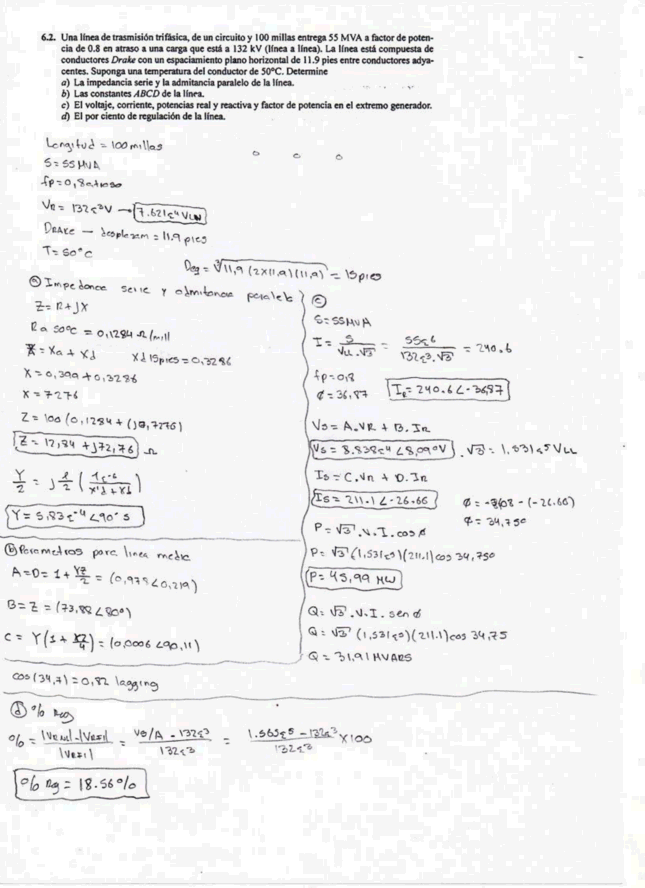 6.2. Una línea de trasmisión trifásica, de un circuito y 100 millas entrega 55 MVA a factor de poten-
cia de 0.8 en atraso a una carga que está a 132 kV (línea a línea). La línea está compuesta de
conductores Drake con un espaciamiento plano horizontal de 11.9 pies entre conductores adya-
centes. Suponga una temperatura del conductor de 50°C. Determine
a) La impedancia serie y la admitancia paralelo de la línea.
b) Las constantes ABCD de la línea.
c) El voltaje, corriente, potencias real y reactiva y factor de potencia en el extremo generador.
d) El por ciento de regulación de la línea.
Longitud = 100 millas
S = 55 MVA
fp = 0,8 atraso
VR = 132ε³V → 7.621ε⁴ VLN
DRAKE — desplazam = 11.9 pies
T = 50°C
Deq = ∛11,9 (2x11,9)(11,9) = 15 pies
ⓐ Impedancia serie y admitancia paralelo
Z = R + jX
R a 50°C = 0,1284 Ω/mill
X = Xa + Xd    Xd 15pies = 0,3286
X = 0,399 + 0,3286
X = 7276
Z = 100 (0,1284 + (j0,7276)
Z = 12,84 + j72,76 Ω
Y/2 = j ℓ/2 (1ε⁻⁶ / X'a + X'd)
Y = 5,83ε⁻⁴ ∠90° S
ⓑ Parametros para linea media
A = D = 1 + YZ/2 = (0,979 ∠0,219)
B = Z = (73,88 ∠80°)
C = Y(1 + YZ/4) = (0,0006 ∠90,11)
cos(34,7) = 0,82 lagging
ⓒ
S = 55MVA
I = S / VLL·√3 = 55ε6 / 132ε³·√3 = 240.6
fp = 0,8
ϕ = 36,87    IR = 240.6 ∠-36,87
Vs = A.VR + B.IR
Vs = 8.838ε4 ∠8,090V .√3 = 1.531ε5 VLL
Is = C.VR + D.IR
Is = 211.1 ∠-26.66    ϕ = -8,08 - (-26.66)
ϕ = 34,750
P = √3.V.I.cos ϕ
P = √3 (1,531ε5)(211.1) cos 34,750
P = 45,99 MW
Q = √3.V.I. sen ϕ
Q = √3 (1,531ε5)(211.1) cos 34,75
Q = 31,91 MVARS
ⓓ % Reg
% = |VRNL| - |VRFL| / |VRFL| = VS/A - 132ε³ / 132ε³ = 1.565ε5 - 132ε³ / 132ε³ X100
% Rg = 18.56%